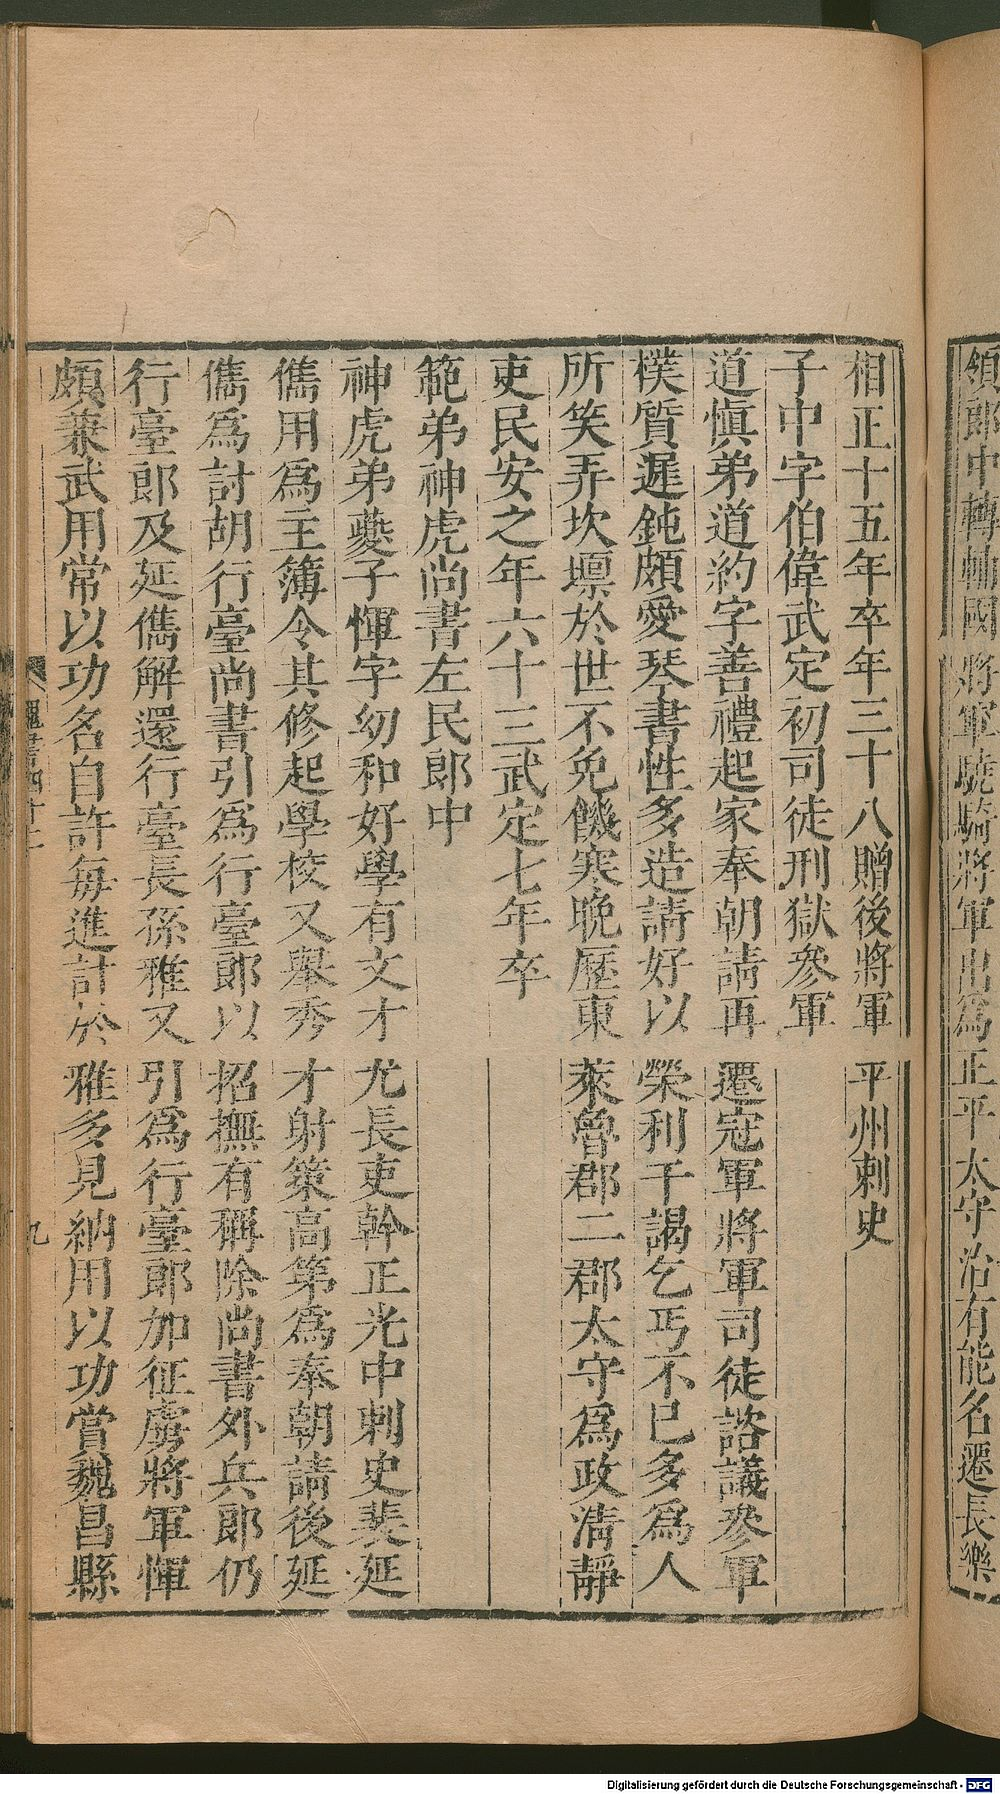 領郎中轉輔國將軍驍騎將軍出為正平太守治有能名遷長樂
相正十五年卒年三十八贈後將軍平州刺史
子中字伯偉武定初司徒刑獄參軍
道愼弟道約字善禮起家奉朝請再遷冠軍將軍司徒諮議參軍
樸質遲鈍頗愛琴書性多造請好以榮利干謁乞丐不已多為人
所笑弄坎壈於世不免饑寒晚歷東萊魯郡二郡太守為政清靜
吏民安之年六十三武定七年卒
範弟神虎尚書左民郎中
神虎弟夔子惲字幼和好學有文才尤長吏幹正光中刺史裴延
儁用為主簿令其修起學校又舉秀才射策高第為奉朝請後延
儁為討胡行臺尚書引為行臺郎以招撫有稱除尚書外兵郎仍
行臺郎及延儁解還行臺長孫稚又引為行臺郎加征虜將軍惲
頗兼武用常以功名自許每進計於雅多見納用以功當魏昌縣
魏書四十二
九
Digitalisierung gefördert durch die Deutsche Forschungsgemeinschaft - DFG